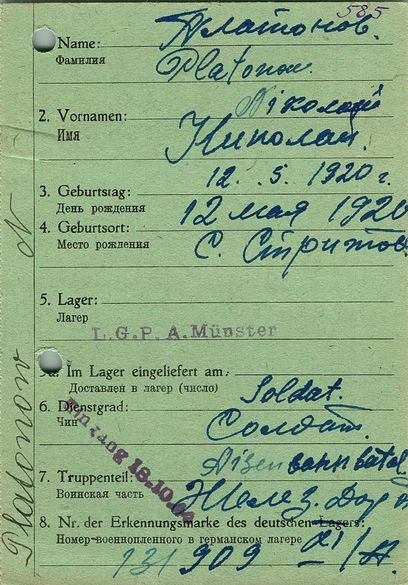 585
Name: Платонов.
Фамилия Platonow
Nikolai
2. Vornamen: Николай
Имя
12. 5. 1920 г.
3. Geburtstag: 12 мая 1920
День рождения
4. Geburtsort: С.
Место рождения
5. Lager:
Лагерь
L.G.P.A. Münster
5a. Im Lager eingeliefert am:
Доставлен в лагерь (число)
Soldat.
6. Dienstgrad: Солдат.
Чин
Eingang 18.10.
7. Truppenteil: Желез. дор
Воинская часть
8. Nr. der Erkennungsmarke des deutschen Lagers:
Номер военнопленного в германском лагере
131909
Platonow N